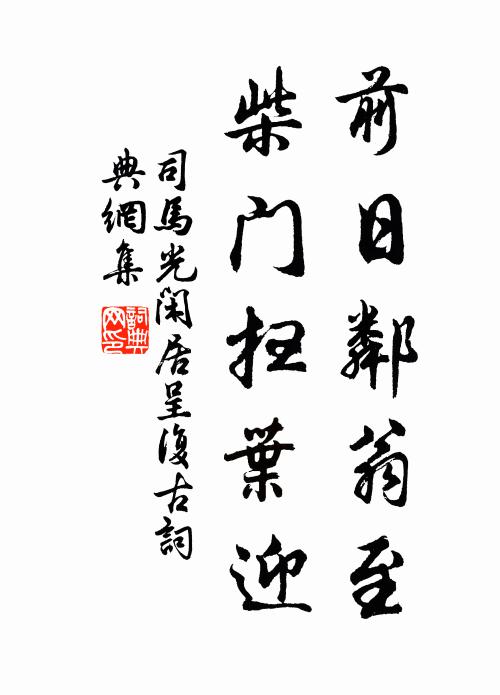 前日鄰翁至
柴门扫葉迎
司馬光閑居呈復古詞
典網集
詞典网印